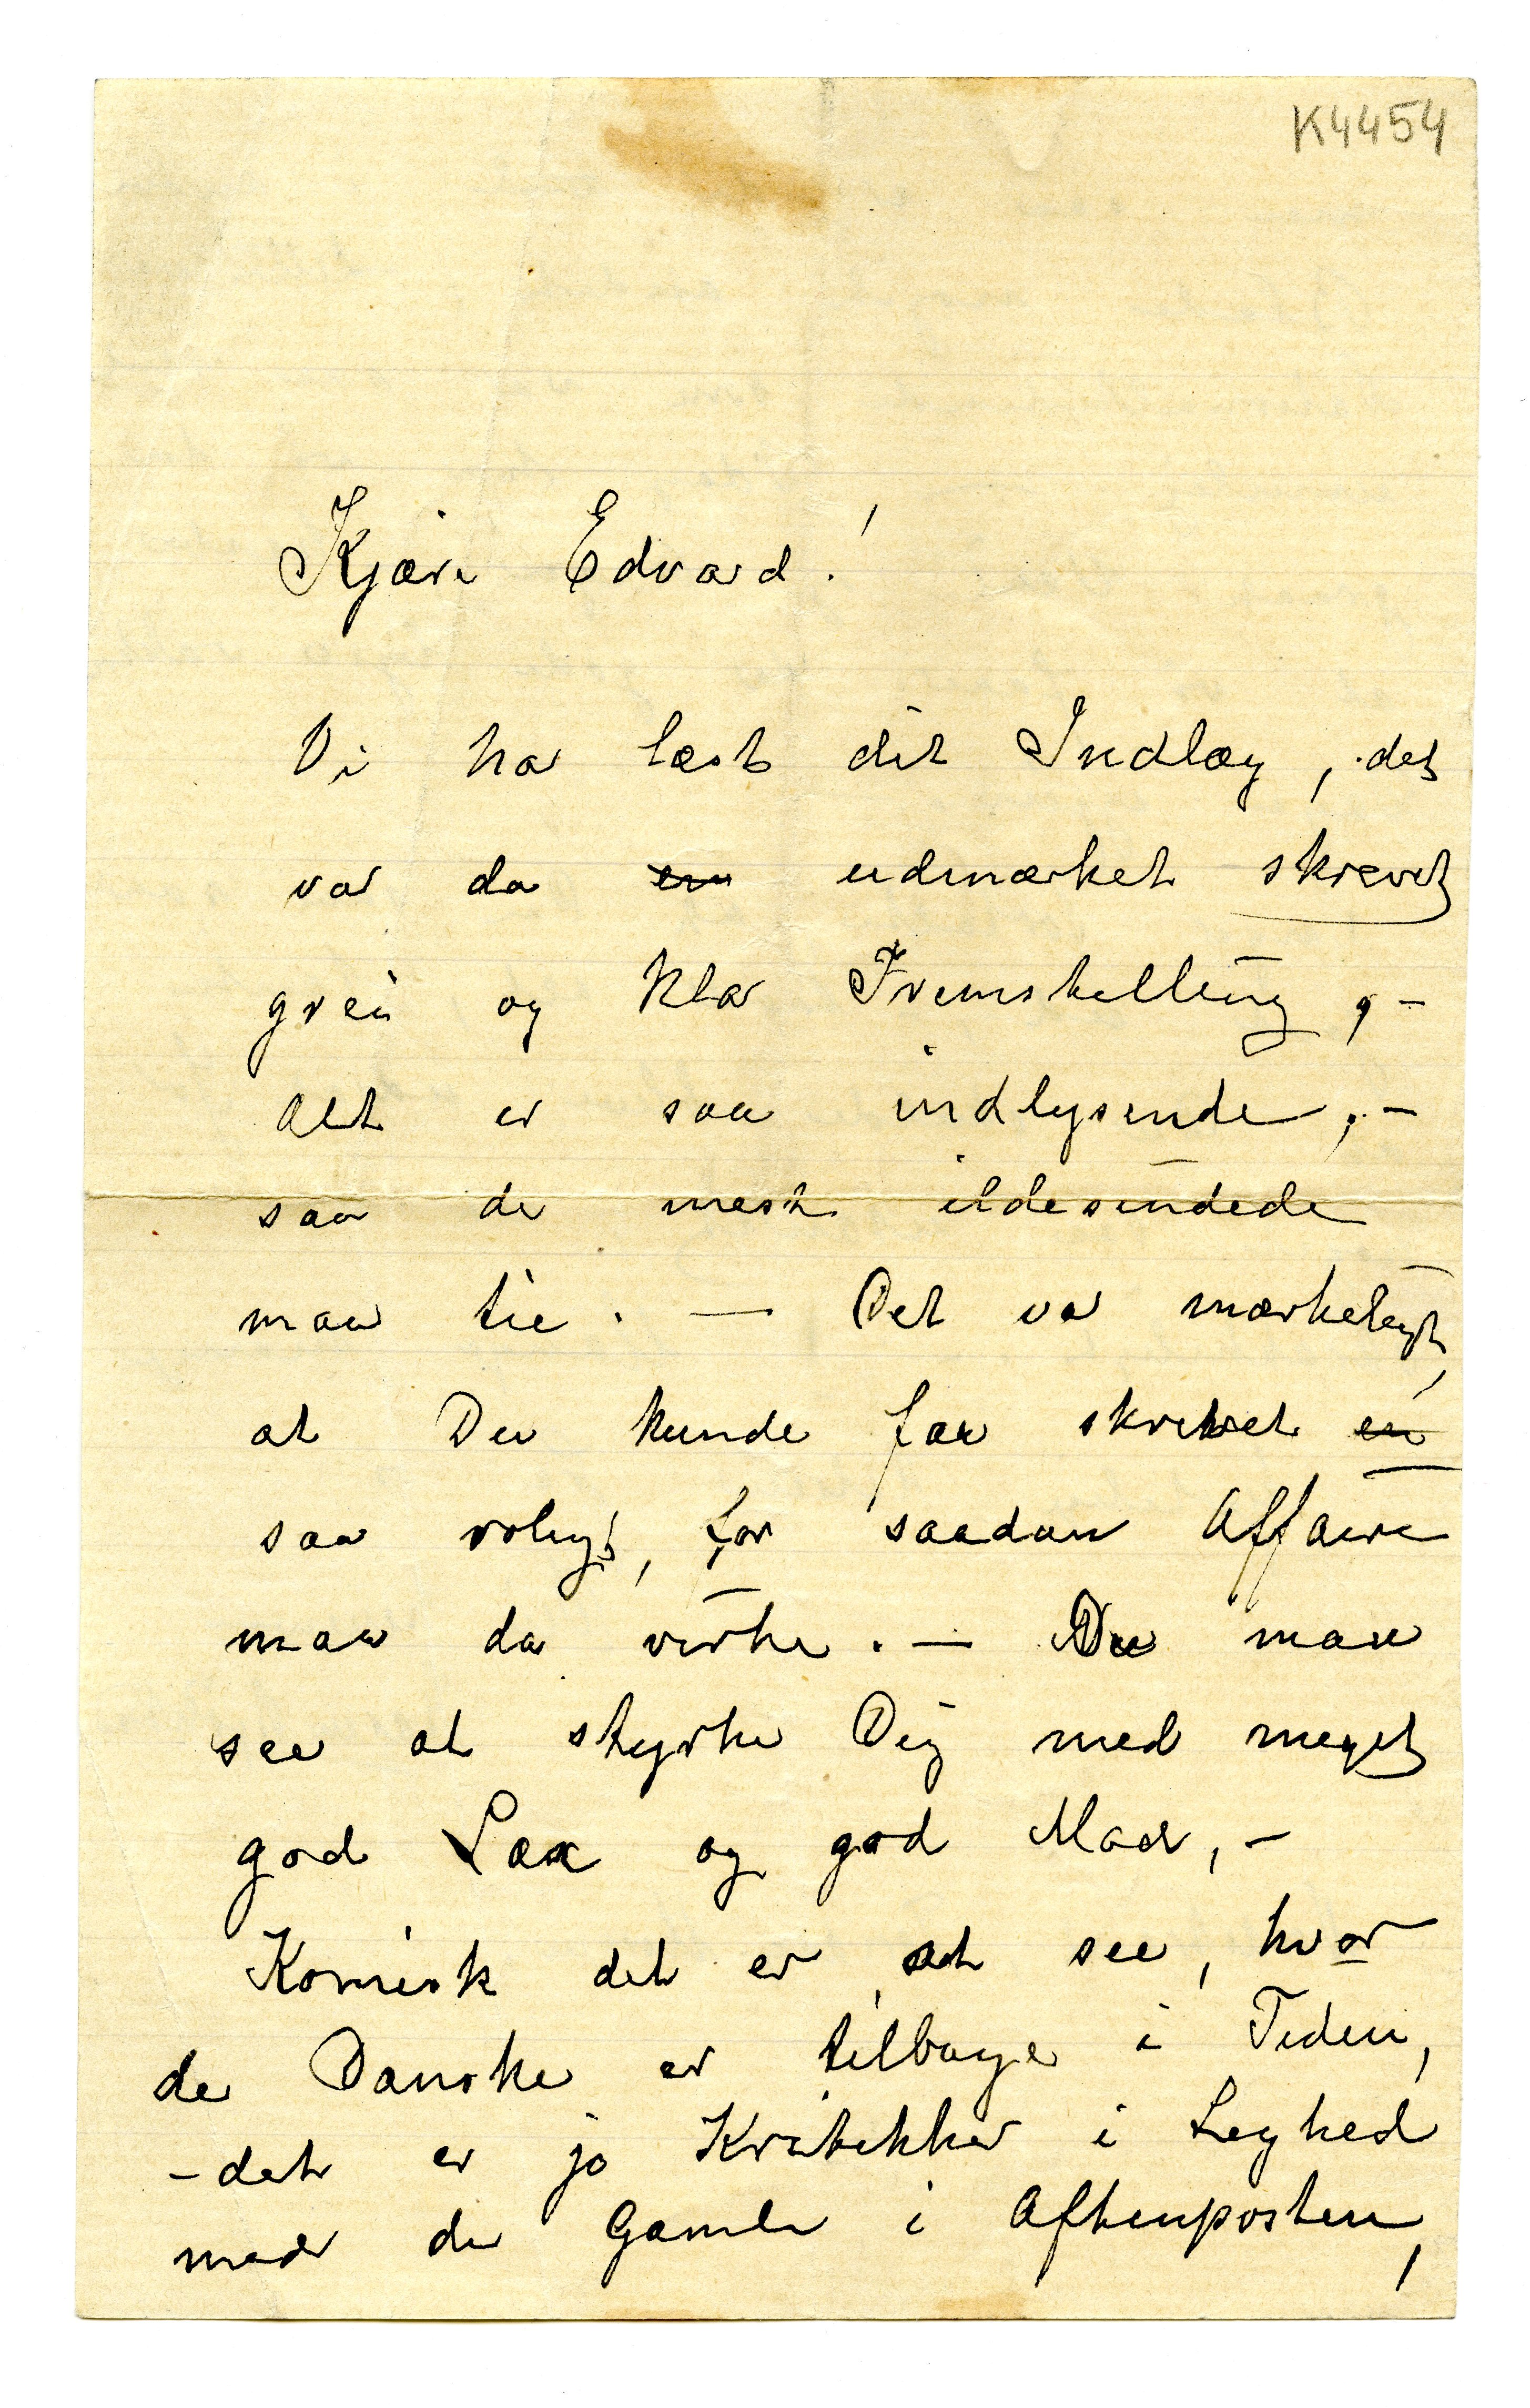 K4454
Kjære Edvard!
Vi har læst dit Indlæg, det
var da en udmærket skrevet
grei og klar Fremstilling, –
Alt er saa indlysende, –
saa de mest ildesindede
maa tie. — Det var mærkeligt,
at Du kunde faa skrevet en
saa roligt, for saadan Affaire
maa da virke. — Du maa
see at styrke Dig med meget
god Lax og god Mad, –
Komisk det er at see, hvor
de Danske er tilbage i Tiden,
– det er jo Kritikker i Lighed
med de Gamle i Aftenposten,